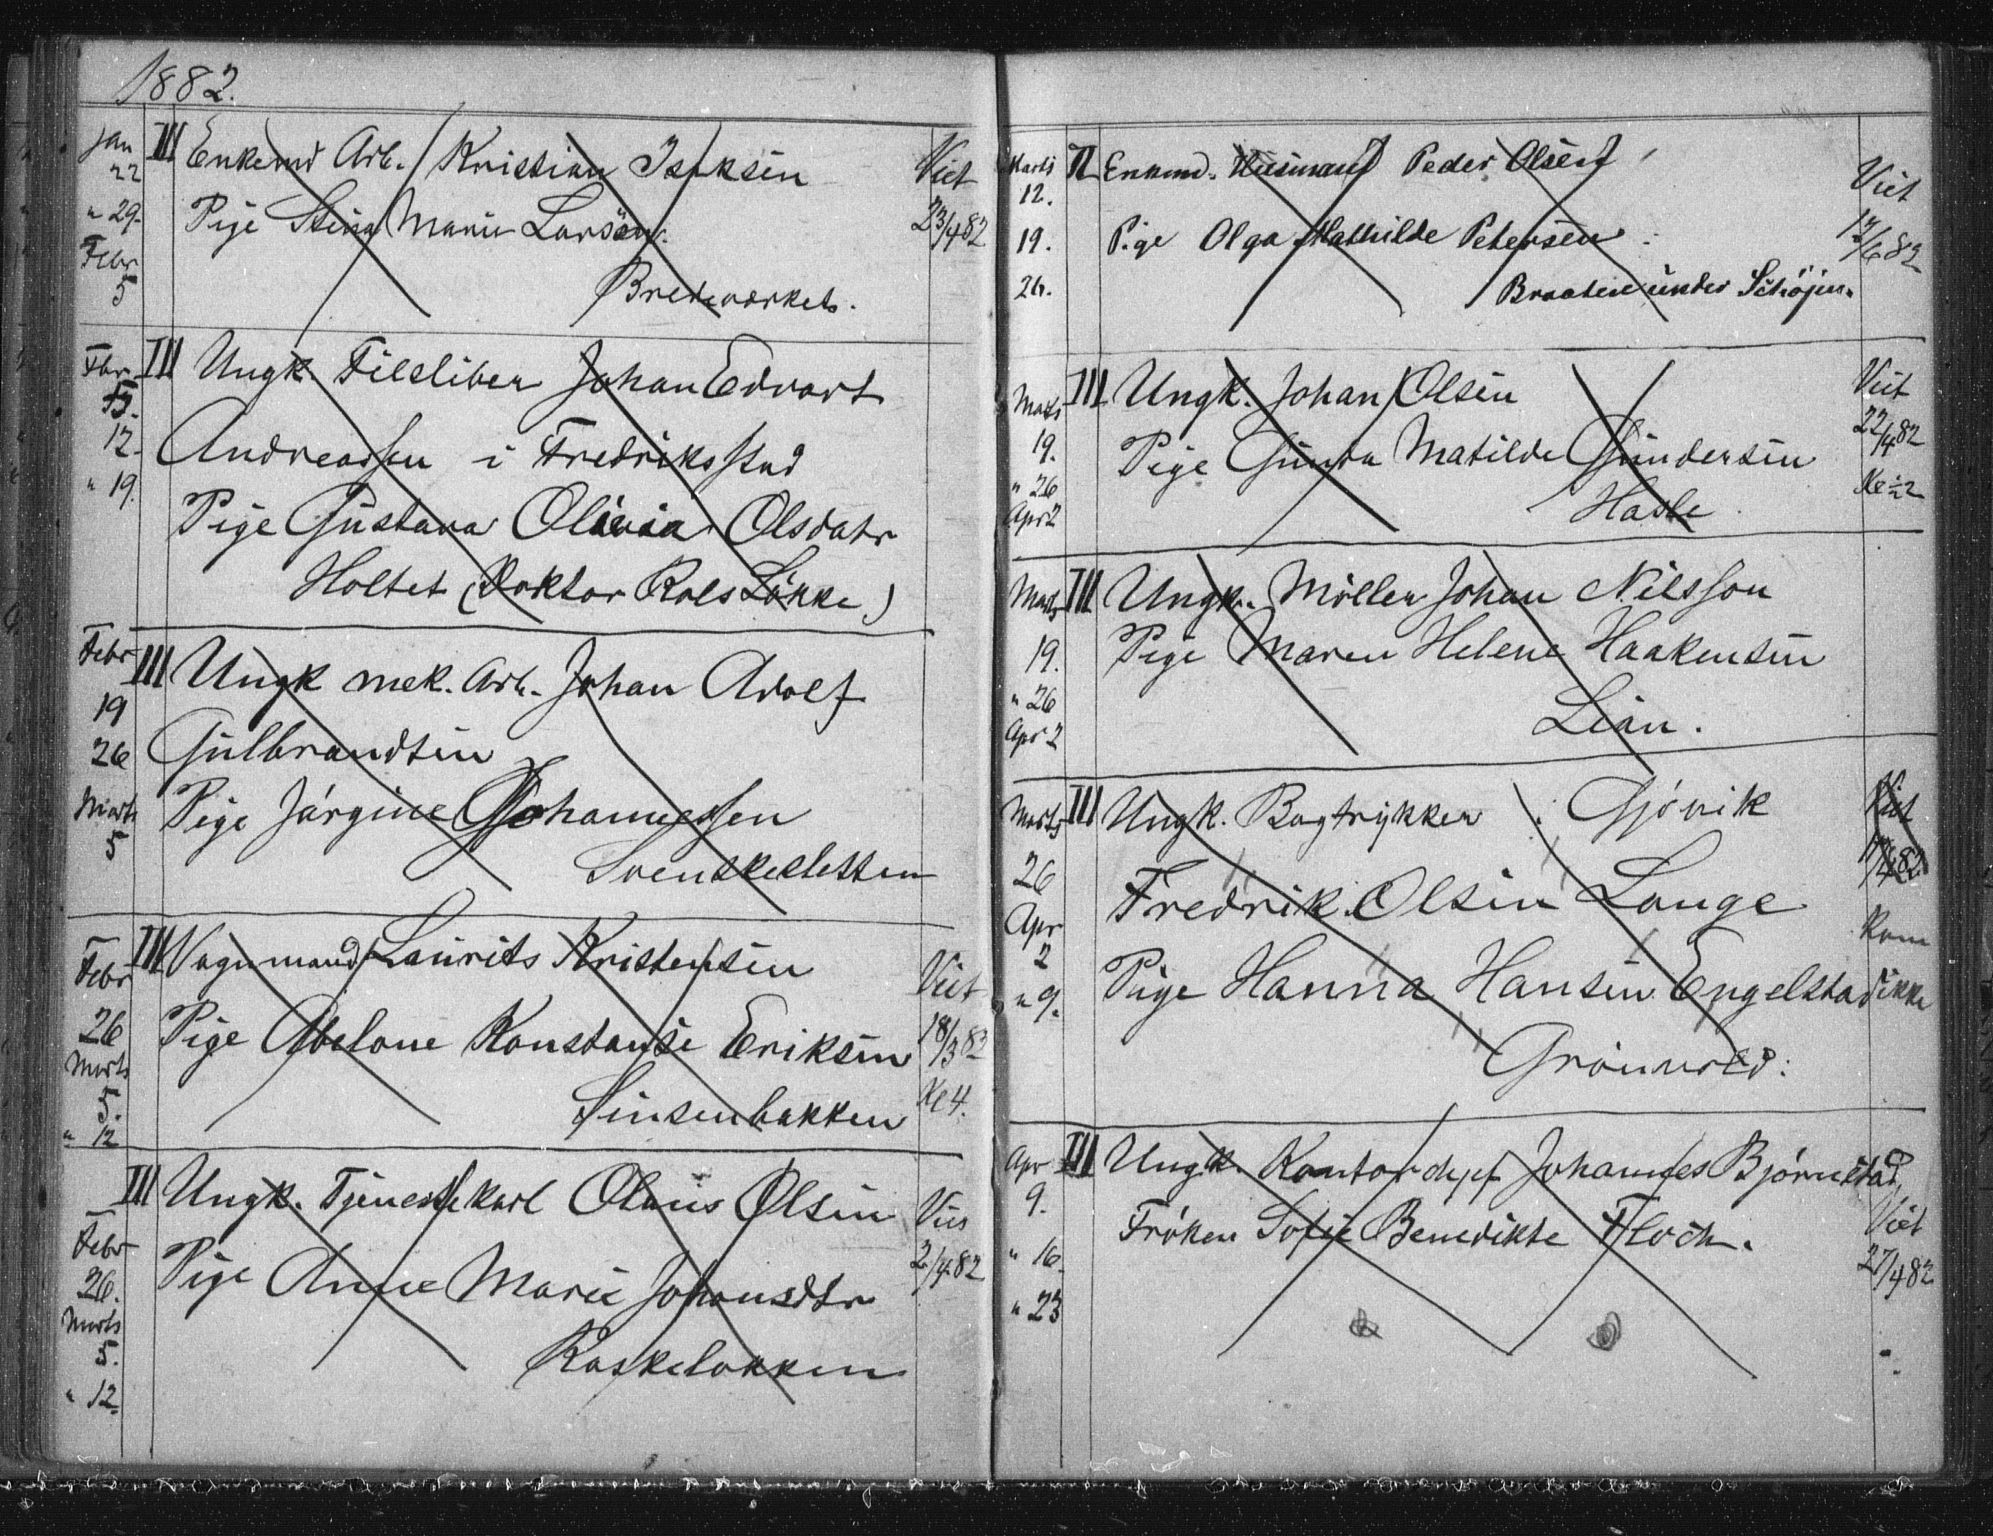 1882.
Jan III Enkemd Arb. Kristian Isaksen Viet
22
" 29. Pige Stina Marie Larsen. 23/4 82
Febr
5 Bredeværket.
Fbr III Ungk. Filsliber Johan Edvart
5.
12. Andreassen i Fredriksstad
" 19. Pige Gustava Olivia Olsdatr
Holtet (Doktor Rolsløkke)
Febr III Ungk mek. Arb. Johan Adolf
19
26 Gulbrandsen
Marts Pige Jørgine Johannessen
5 Svenskesletten
Febr III Vognmand Laurits Kristensen Viet
26 Pige Abelone Konstanse Eriksen 18/3 82
Marts
5. Sinsenbakken Kl 4.
" 12
III Ungk. Tjenestekarl Olaus Olsen Vies
Febr Pige Anne Marie Johansdtr 2/4 82
26.
Marts
5. Kaskeløkken
" 12.
Marts II Enkemd. Huusmand Peder Olsen Viet
12.
19. Pige Olga Mathilde Petersen 17/6 82
26. Braaten under Schøjen.
Marts III Ungk. Johan Olsen Viet
19. Pige Gunda Matilde Gundersen 22/4 82
" 26 Hasle
Apr 2
Marts III Ungk. Møller Johan Nilsson
19. Pige Maren Helene Haakensen
" 26 Lian.
Apr 2
Marts III Ungk. Bogtrykker Gjøvik Viet
26 Fredrik Olsen Lange
Apr Kom
2 Pige Hanna Hansen Engelstad ikke
" 9.
Grønvold.
Apr III Ungk. Kontorchef Johannes Bjørnstad
9. Frøken Sofie Benedikte Floch. Viet
" 16. 27/4 82
" 23